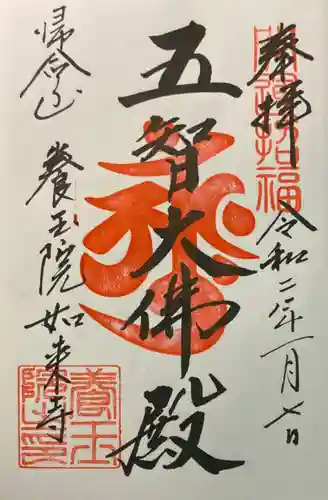 奉拝
令和二年一月七日
五智大佛殿
帰命山
養玉院如来寺
養玉院印